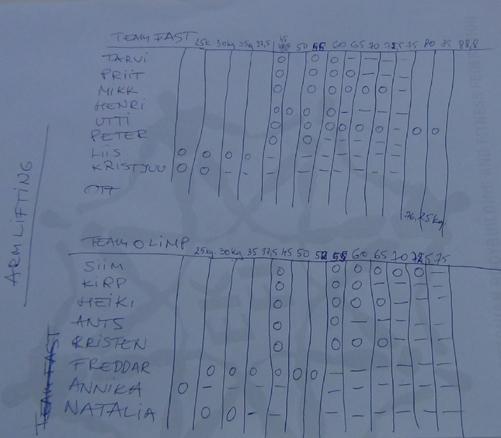 TEAM FAST 25k 30kg 35kg 37,5 45 50 55 60 65 70 72,5 75 80 85 88,8
TARVI O O O – – – –
PRIIT O O O O O – –
MIKK O O O – – – –
HENRI O O O O – – – –
UTTI O O O – – – –
PETER O O O O O O – O O
LIIS O O O O – – – – – –
KRISTJUU O O – – – – – – – –
OTT
76,25kg
ARM LIFTING
TEAM OLIMP 25kg 30kg 35 37,5 45 50 52 55 60 65 70 72,5 75
SIIM O O O O O O –
KIRP O O O O – – –
HEIKI O O O O – – –
ANTS O O – – – – –
KRISTEN O O O O – – –
FREDDAR O O O O O O – – – – – –
ANNIKA O – – – – – – – – –
NATALIA O O – – – – – – – –
TEAM FAST